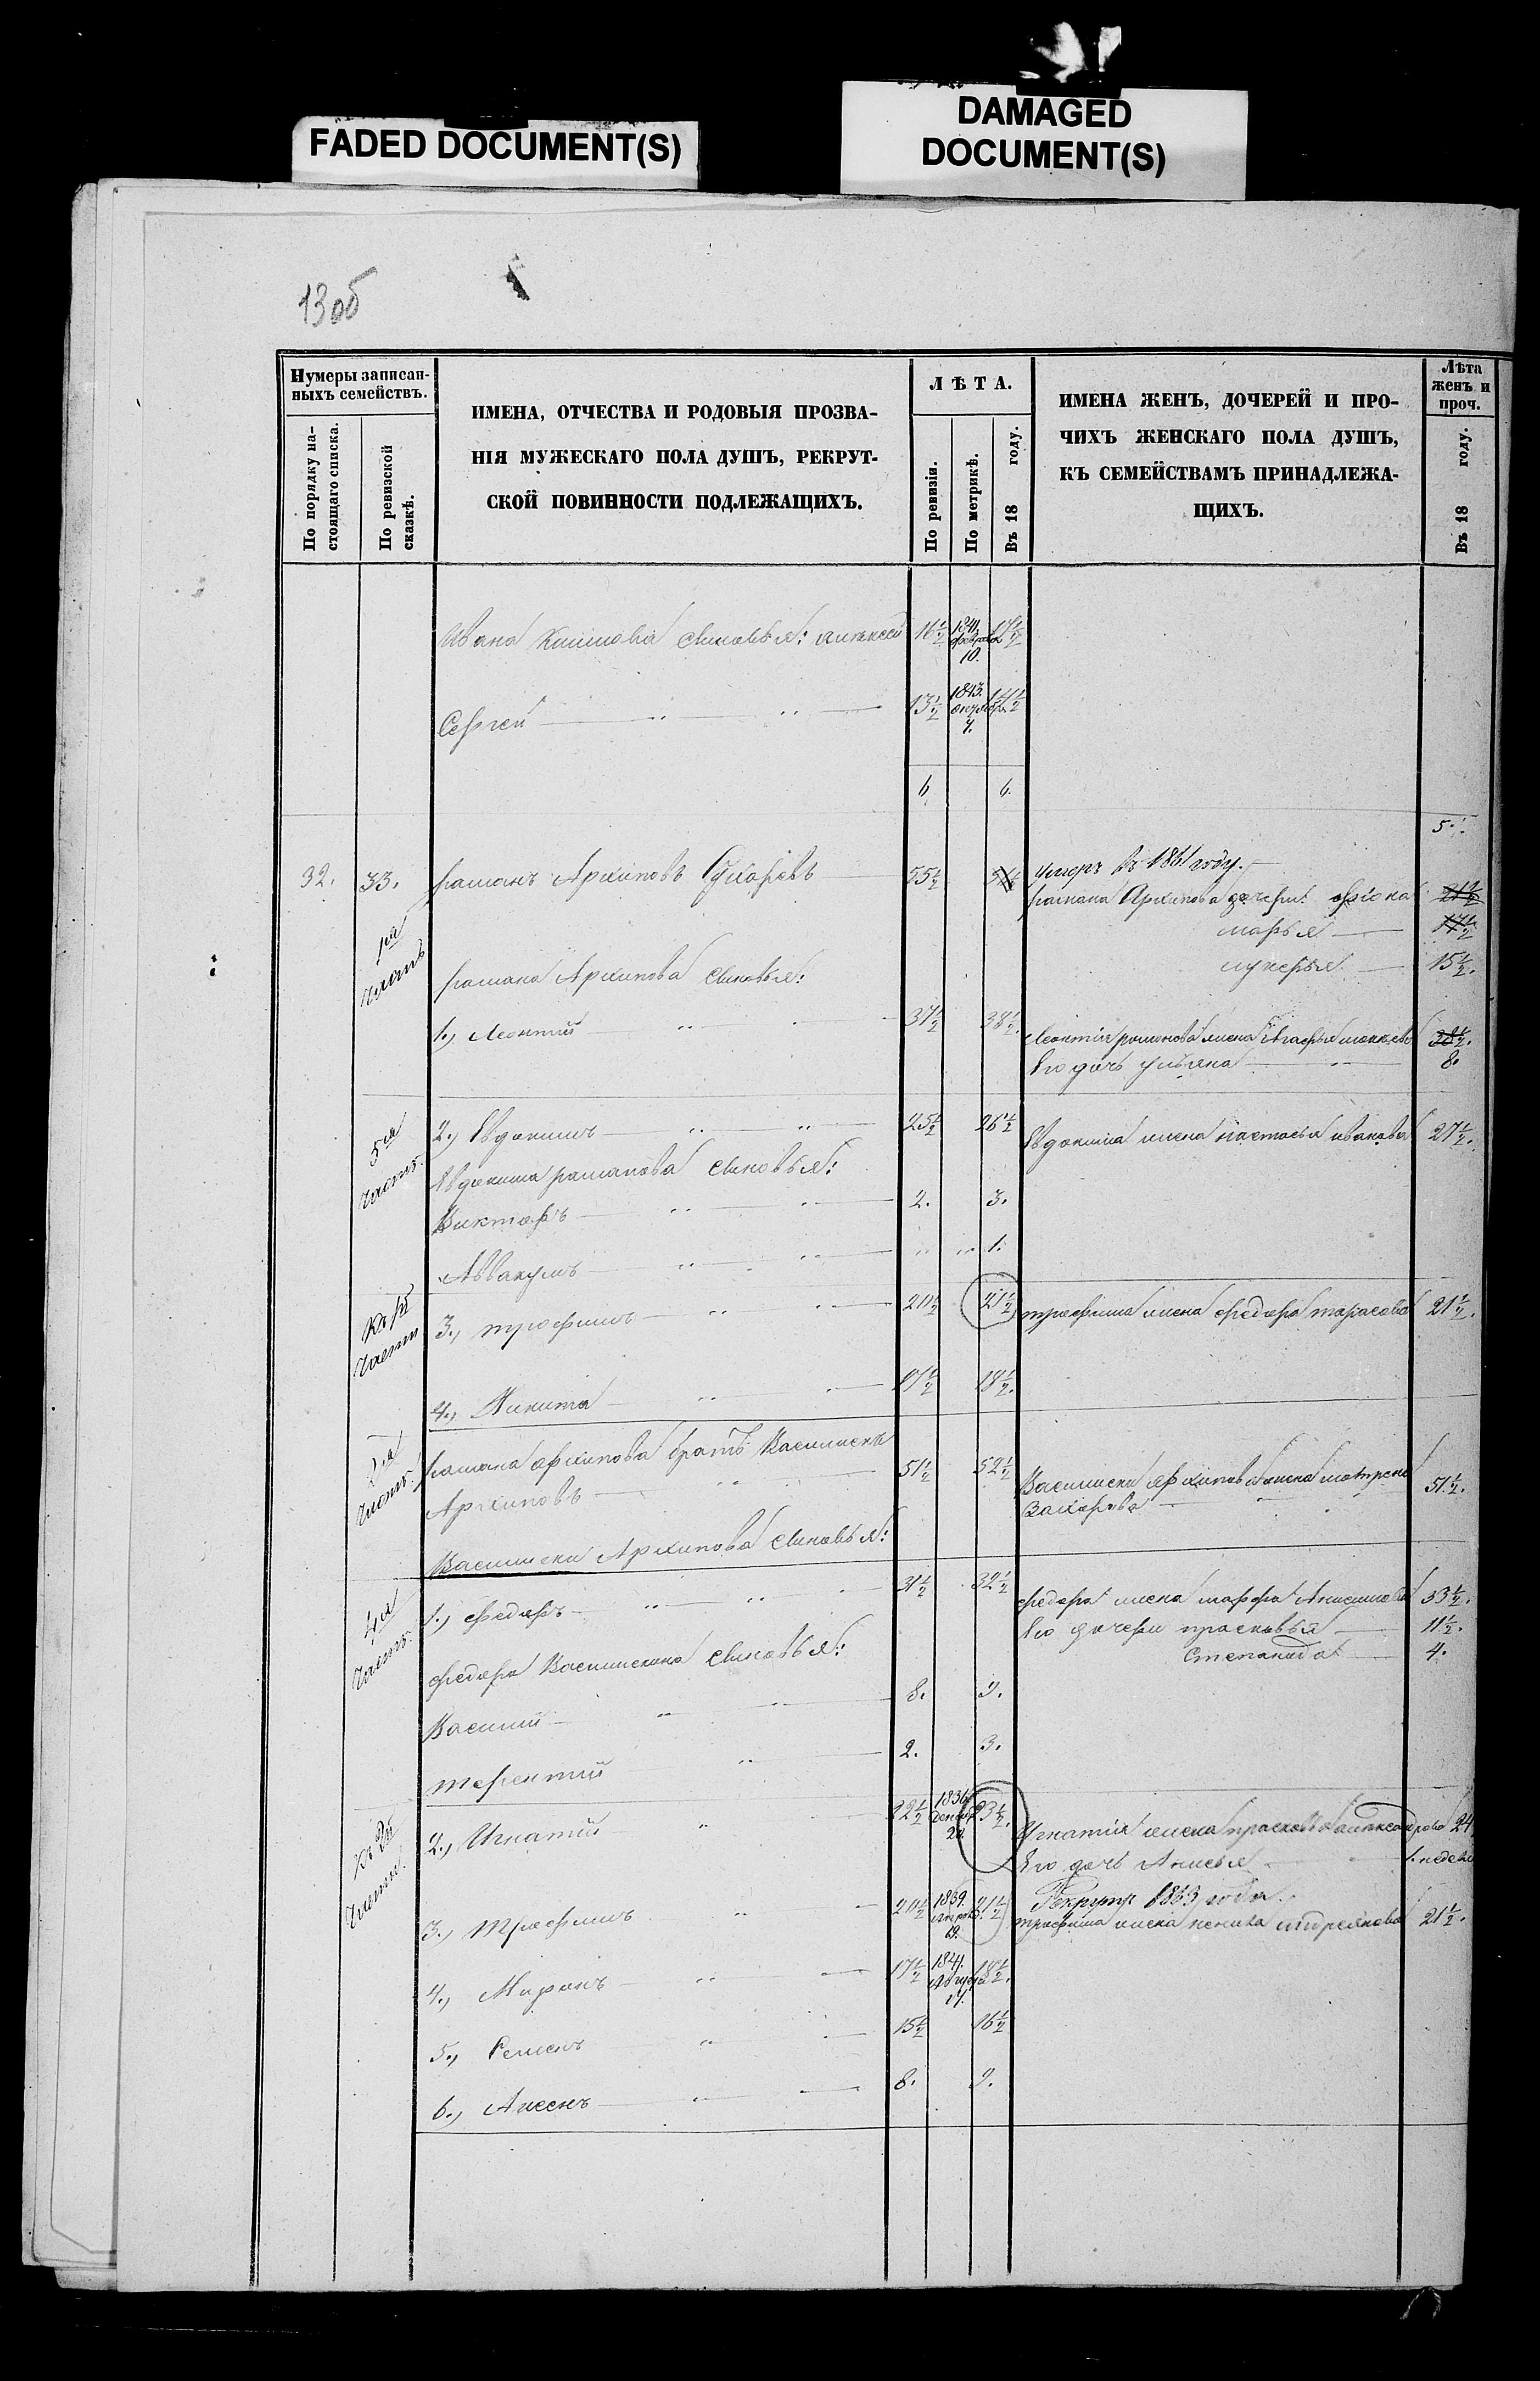 FADED DOCUMENT(S)
DAMAGED
DOCUMENT(S)
13об
Нумеры записан-
ныхъ семействъ.
По порядку на-
стоящаго списка.
По ревизской
сказкѣ.
ИМЕНА, ОТЧЕСТВА И РОДОВЫЯ ПРОЗВА-
НІЯ МУЖЕСКАГО ПОЛА ДУШЪ, РЕКРУТ-
СКОЙ ПОВИННОСТИ ПОДЛЕЖАЩИХЪ.
ЛѢТА.
По ревизіи.
По метрикѣ.
Въ 18 году.
ИМЕНА ЖЕНЪ, ДОЧЕРЕЙ И ПРО-
ЧИХЪ ЖЕНСКАГО ПОЛА ДУШЪ,
КЪ СЕМЕЙСТВАМЪ ПРИНАДЛЕЖА-
ЩИХЪ.
Лѣта
женъ и
проч.
Въ 18 году.
Ивана сыновья: алексей 16½ 1841. февраля 10. 17½
Сергей 13½ 1843. 14½
6 6.
5.
32. 33. романъ Архиповъ 55½ умеръ въ 1861 году.
романа Архипова дочери: 21½
1я часть
марья 17½
лукерья 15½.
романа Архипова сыновья:
1., Леонтий 37½ 38½. Леонтия романова жена Агафья 38½.
Его дочь ульяна 8.
5я часть.
2., Евдокимъ 25½ 26½ Евдокима жена настасья иванова 27½.
Евдокима романова сыновья:
Викторъ 2. 3.
Аввакумъ 1.
Къ 1й части
3., трофимъ 20½ 21½ трофима жена федора тарасова 21½.
4., Никита 17½ 18½.
2я часть.
романа архипова братъ Василиска
Архиповъ 51½ 52½ Василиска архипова жена матрена
Захарова 51½.
Василиска Архипова сыновья:
4я часть.
1., федоръ 31½ 32½ федора жена марфа Анисимова 33½.
Его дочери прасковья 11½.
Степанида 4.
федора Василискина сыновья:
Василий 8. 9.
терентий 2. 3.
Къ 2й части.
2., Игнатий 22½ 1836 декабр. 20. 23½. Игнатия жена прасковья александрова 24
Его дочь Анисья 1. недели
Рекрутъ 1863 года.
3., трофимъ 20½ 1839. 19. 21½ трофима жена андреянова 21½.
4., Миронъ 17½ 1841. Августа 17. 18½.
5., Семенъ 15½ 16½
6., Аксенъ 8. 9.